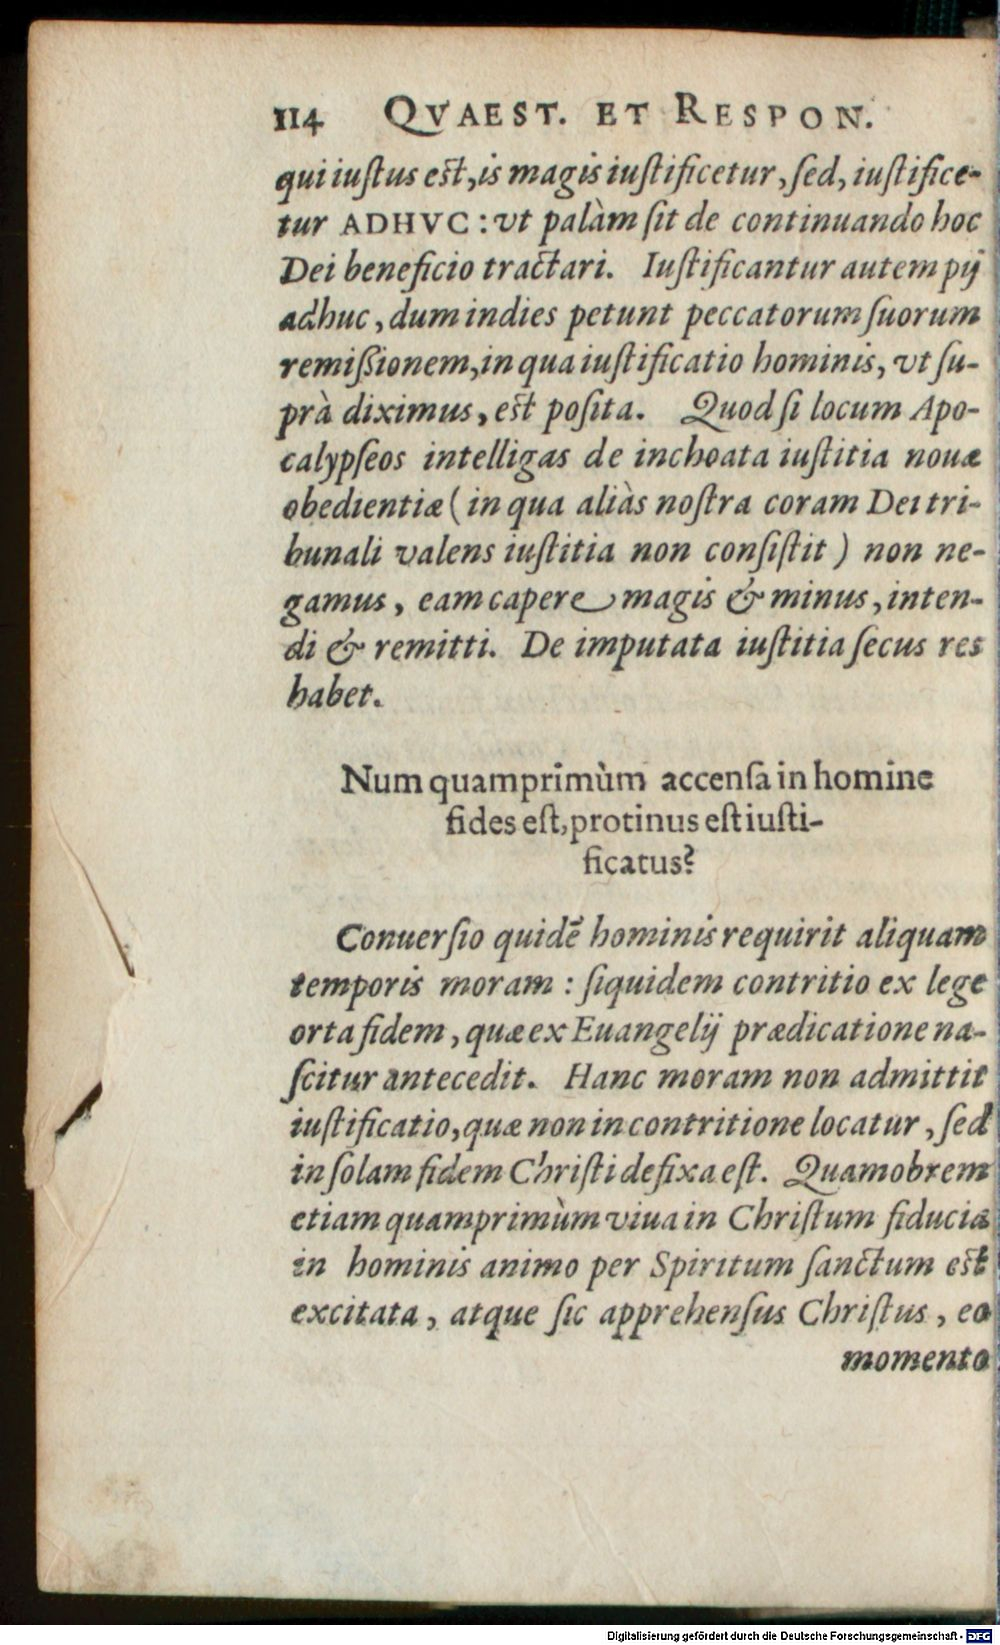 114 QVAEST. ET RESPON.
qui iuſtus eſt, is magis iuſtificetur, ſed, iuſtifice-
tur ADHVC: vt palàm ſit de continuando hoc
Dei beneficio tractari. Iuſtificantur autem pij
adhuc, dum indies petunt peccatorum ſuorum
remiſsionem, in qua iuſtificatio hominis, vt ſu-
prà diximus, eſt poſita. Quod ſi locum Apo-
calypſeos intelligas de inchoata iuſtitia nouæ
obedientiæ (in qua aliàs noſtra coram Dei tri-
bunali valens iuſtitia non conſiſtit) non ne-
gamus, eam capere magis & minus, inten-
di & remitti. De imputata iuſtitia ſecus res
habet.
Num quamprimùm accenſa in homine
fides eſt, protinus eſt iuſti-
ficatus?
Conuerſio quidẽ hominis requirit aliquam
temporis moram: ſiquidem contritio ex lege
orta fidem, quæ ex Euangelij prædicatione na-
ſcitur antecedit. Hanc moram non admittit
iuſtificatio, quæ non in contritione locatur, ſed
in ſolam fidem Chriſti defixa eſt. Quamobrem
etiam quamprimùm viua in Chriſtum fiducia
in hominis animo per Spiritum ſanctum eſt
excitata, atque ſic apprehenſus Chriſtus, eo
momento
Digitalisierung gefördert durch die Deutsche Forschungsgemeinschaft - DFG